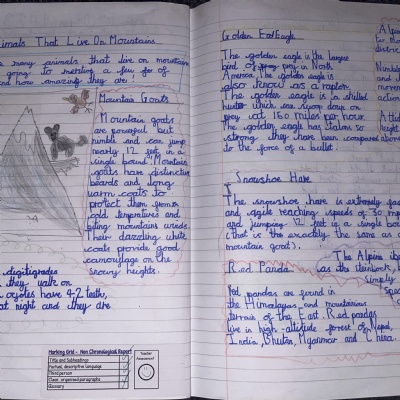 nimals That Live On Mountains
e many animals that live on mountains
going to mention a few for of
and how amazing they are!
Mountain Goats
Mountain goats
are powerful but
nimble and can jump
nearly 12 feet in a
single bound. Mountain
goats have distinctive
beards and long
warm coats to
protect them from
cold temperatures and
mountain
their dazzling white
coats provide good
camouflage on the
snowy heights.
digitigrades
they walk on
coyotes have 42 teeth,
at night and they are
Marking Grid - Non Chronological Report
Teacher Assessment
Title and Subheadings
Factual, descriptive language
Third person
Clear, organised paragraphs
Glossary
Golden Eagle
The golden eagle is the largest
bird of prey in North
America. The golden eagle is
also know as a raptor.
The golden eagle is a skilled
hunter which can swoop down on
prey at 150 miles per hour.
The golden eagle has talons so
strong they have been compared
to the force of a bullet.
Snowshoe Hare
The snowshoe hare is extremely fast
and agile reaching speeds of 30 mph
and jumping 12 feet in a single bound
(that is the exactly the same as a
mountain goat).
The Alpine
Red Panda
as the steinbock,
simply
Red pandas are found in
the Himalayas and mountainous
terrain of the East. Red pandas
live in high-altitude forest of Nepal,
India, Bhutan, Myanmar and China.
Alpin
to the
district
Nimble
and
movem
action
Altitud
height
above